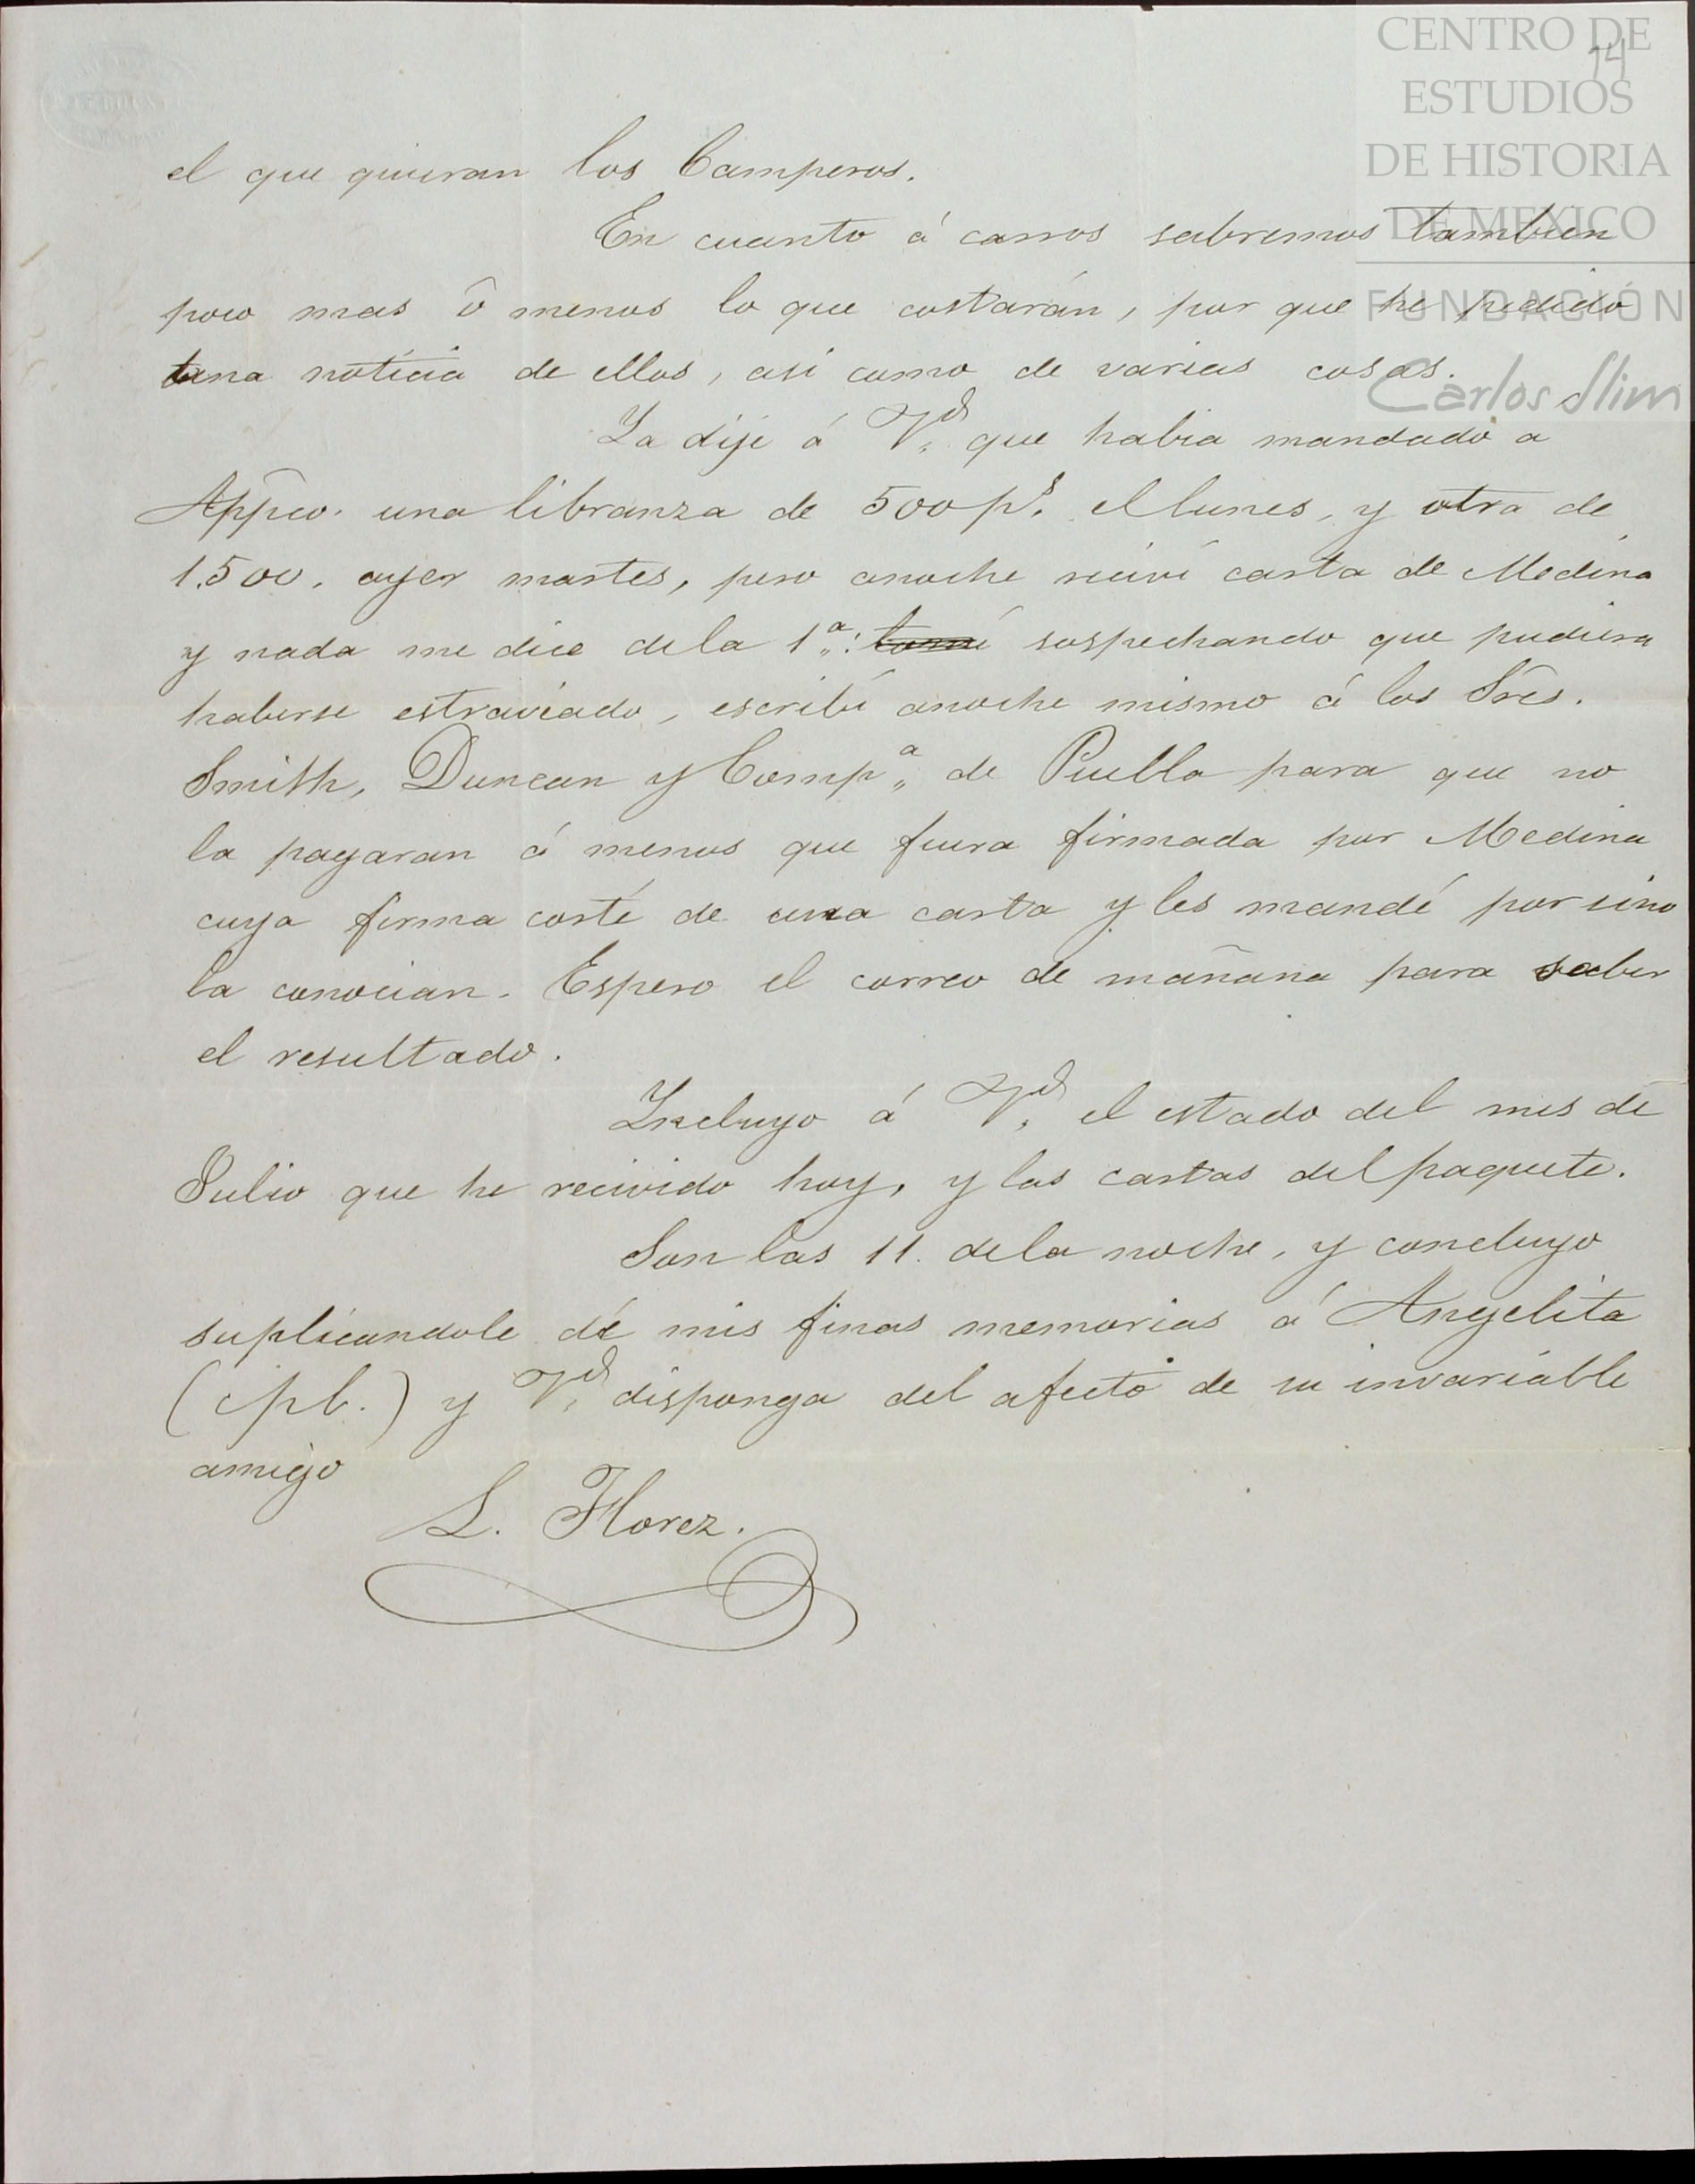 CENTRO DE
ESTUDIOS
DE HISTORIA
DE MEXICO
FUNDACIÓN
Carlos Slim
14
el que quieran los Camperos.
En cuanto á carros sabremos tambien
poco mas ó menos lo que costarán, por que he pedido
una noticia de ellos, asi como de varias cosas.
Ya dije á Vd. que habia mandado a
Appco. una libranza de 500 ps. el lunes, y otra de
1.500. ayer martes, pero anoche reciví carta de Medina
y nada me dice dela 1a.: sospechando que pudiera
haberse estraviado, escribí anoche mismo á los Sres.
Smith, Duncan y Compa. de Puebla para que no
la pagaran á menos que fuera firmada por Medina
cuya firma corté de una carta y les mandé por sino
la conocian. Espero el correo de mañana para saber
el resultado.
Incluyo á Vd. el estado del mes de
Julio que he recivido hoy, y las cartas del paquete.
Son las 11. dela noche, y concluyo
suplicandole dé mis finas memorias á Angelita
(cpb.) y Vd. disponga del afecto de su invariable
amigo
L. Florez.